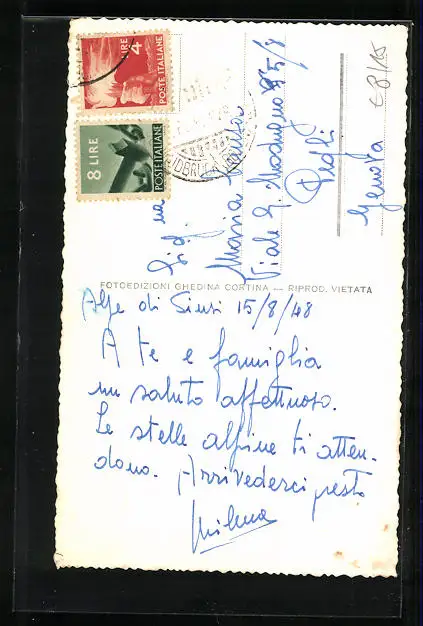 LIRE 4
POSTE ITALIANE
8 LIRE
POSTE ITALIANE
Maria
Viale G. Modugno
Pegli
Genova
FOTOEDIZIONI GHEDINA CORTINA — RIPROD. VIETATA
Alpe di Siusi 15/8/48
A te e famiglia
un saluto affettuoso.
Le stelle alpine ti atten-
dono. Arrivederci presto
Milena